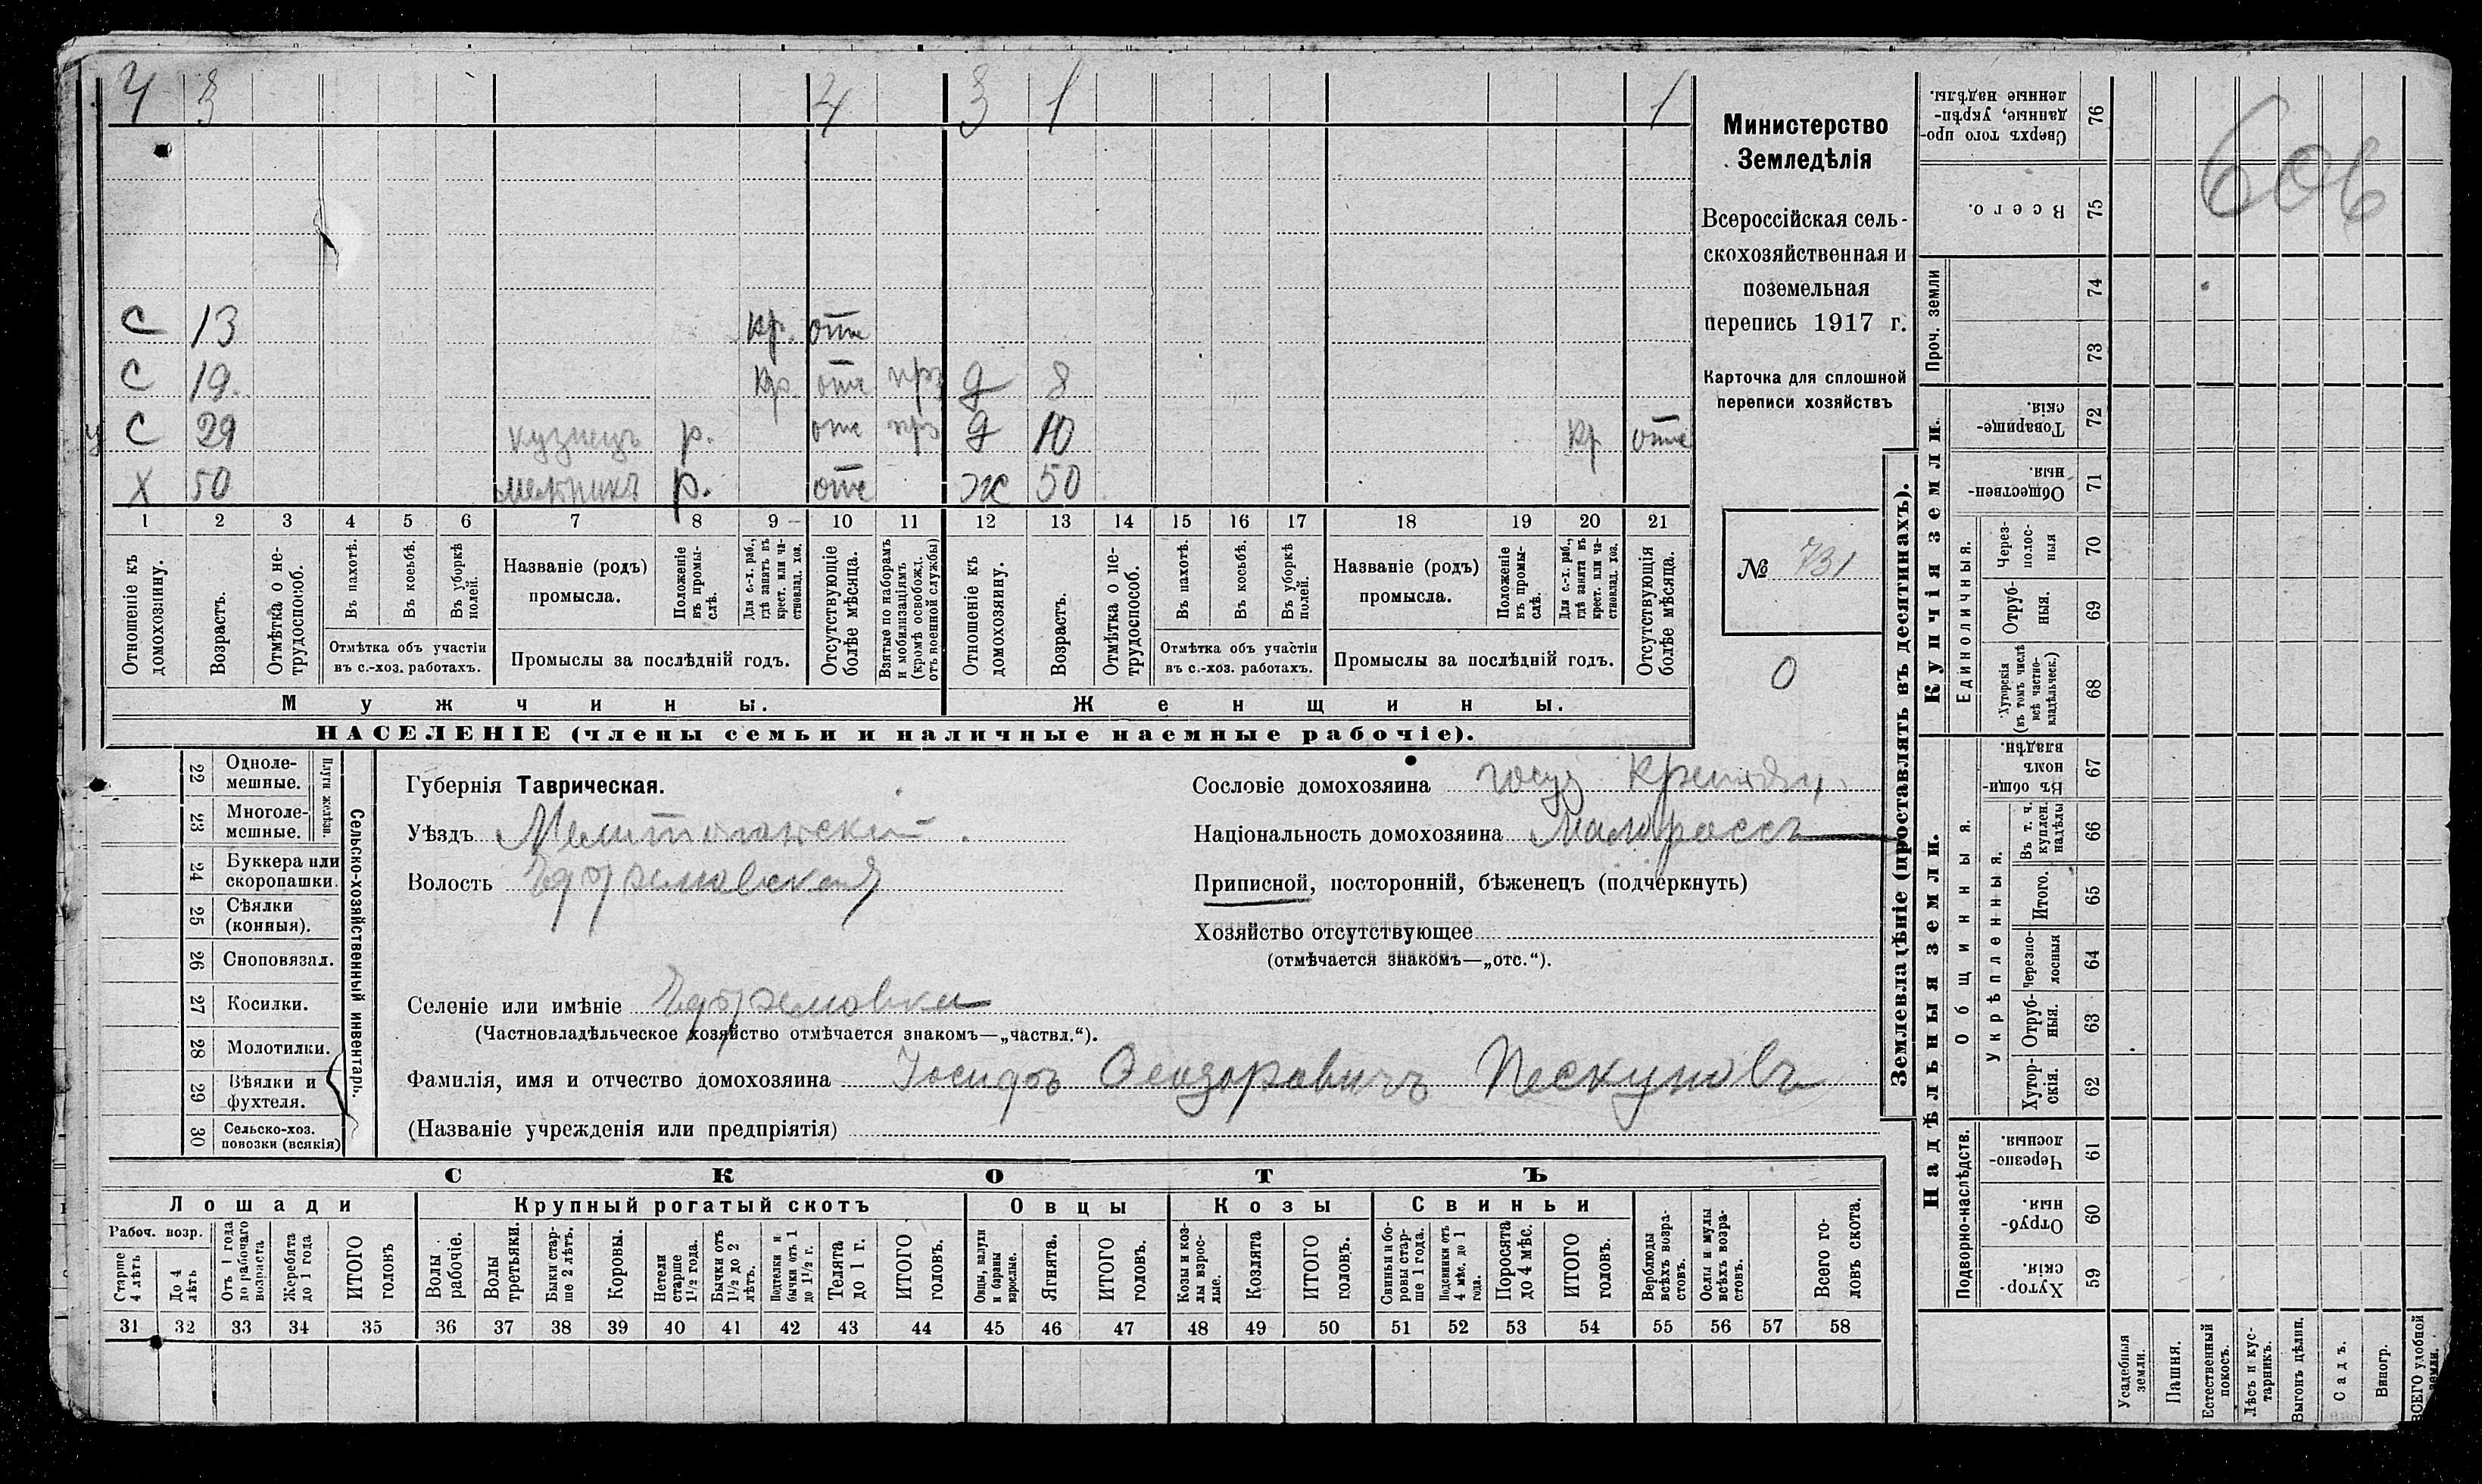 4 3 4 3 1 1
С 13 кр. отс
С 19. кр. отс прз д 8
С 29 кузнецъ р. отс прз д 10 кр отс
Х 50 р. отс ж 50
1 2 3 4 5 6 7 8 9 10 11 12 13 14 15 16 17 18 19 20 21
Отношеніе къ домохозяину.
Возрастъ.
Отмѣтка о нетрудоспособ.
Въ пахотѣ.
Въ косьбѣ.
Въ уборкѣ полей.
Отмѣтка объ участіи
въ с.-хоз. работахъ.
Названіе (родъ)
промысла.
Положеніе въ промы-слѣ.
Для с.-х. раб., гдѣ занятъ въ крест. или ча-стновлад. хоз.
Промыслы за послѣдній годъ.
Отсутствующіе болѣе мѣсяца.
Взятые по наборамъ и мобилизаціямъ (кромѣ освобожд. отъ военной службы)
Отношеніе къ домохозяину.
Возрастъ.
Отмѣтка о не-трудоспособ.
Въ пахотѣ.
Въ косьбѣ.
Въ уборкѣ полей.
Отмѣтка объ участіи
въ с.-хоз. работахъ.
Названіе (родъ)
промысла.
Положеніе въ промы-слѣ.
Для с.-х. раб., гдѣ занята въ крест. или ча-стновлад. хоз.
Промыслы за послѣдній годъ.
Отсутствующія болѣе мѣсяца.
Мужчины.
Женщины.
НАСЕЛЕНІЕ (члены семьи и наличные наемные рабочіе).
Министерство
Земледѣлія
Всероссійская сель-
скохозяйственная и
поземельная
перепись 1917 г.
Карточка для сплошной
переписи хозяйствъ
№ 731
0
22 Одноле-мешные.
23 Многоле-мешные.
Плуги желѣзн.
24 Буккера или скоропашки.
25 Сѣялки (конныя).
26 Сноповязал.
27 Косилки.
28 Молотилки.
29 Вѣялки и фухтеля.
30 Сельско-хоз. повозки (всякія)
Сельско-хозяйственный инвентарь.
Губернія Таврическая.
Уѣздъ Мелитопольскій.
Волость Ефремовская
Селеніе или имѣніе Ефремовка
(Частновладѣльческое хозяйство отмѣчается знакомъ—„частвл.“).
Фамилія, имя и отчество домохозяина Іосифъ Феодоровичъ Пескуновъ
(Названіе учрежденія или предпріятія)
Сословіе домохозяина госуд Крестян.
Національность домохозяина Малороссъ
Приписной, посторонній, бѣженецъ (подчеркнуть)
Хозяйство отсутствующее
(отмѣчается знакомъ—„отс.“).
СКОТЪ
Лошади
Крупный рогатый скотъ
Овцы
Козы
Свиньи
Рабоч. возр.
Старше 4 лѣтъ
До 4 лѣтъ
Отъ 1 года до рабочаго возраста
Жеребята до 1 года
ИТОГО головъ
Волы рабочіе.
Волы третьяки.
Быки стар-ше 2 лѣтъ.
Коровы.
Нетели старше 1½ года.
Бычки отъ 1½ до 2 лѣтъ.
Подтелки и бычки отъ 1 до 1½ г.
Телята до 1 г.
ИТОГО головъ.
Овцы, валухи и бараны взрослые.
Ягнята.
ИТОГО головъ.
Козы и коз-лы взрос-лые.
Козлята
ИТОГО головъ.
Свиньи и бо-ровы стар-ше 1 года.
Подсвинки отъ 4 мѣс. до 1 года.
Поросята до 4 мѣс.
ИТОГО головъ.
Верблюды всѣхъ возра-стовъ.
Ослы и мулы всѣхъ возра-стовъ.
Всего го-ловъ скота.
31 32 33 34 35 36 37 38 39 40 41 42 43 44 45 46 47 48 49 50 51 52 53 54 55 56 57 58
Землевладѣніе (проставлять въ десятинахъ).
Купчія земли.
Надѣльныя земли.
Сверхъ того про-данные, укрѣп-ленные надѣлы. 76
Всего. 75
Проч. земли 74 73
Товарище-скія. 72
Обществен-ныя. 71
Единоличныя.
Через-полос-ныя 70
Отруб-ныя. 69
Хуторскія (въ томъ числѣ всѣ частно-владѣльческ.) 68
Общинныя.
Въ общи-номъ владѣн. 67
Укрѣпленныя.
Въ т. ч. куплен. надѣлы 66
Итого. 65
Черезпо-лосныя 64
Отруб-ныя. 63
Хутор-скія. 62
Подворно-наслѣдств.
Черезпо-лосныя. 61
Отруб-ныя. 60
Хутор-скія. 59
Усадебныя земли.
Пашня.
Естественный покосъ.
Лѣсъ и кус-тарникъ.
Выгонъ цѣлин.
Садъ.
Виногр.
ВСЕГО удобной земли.
606